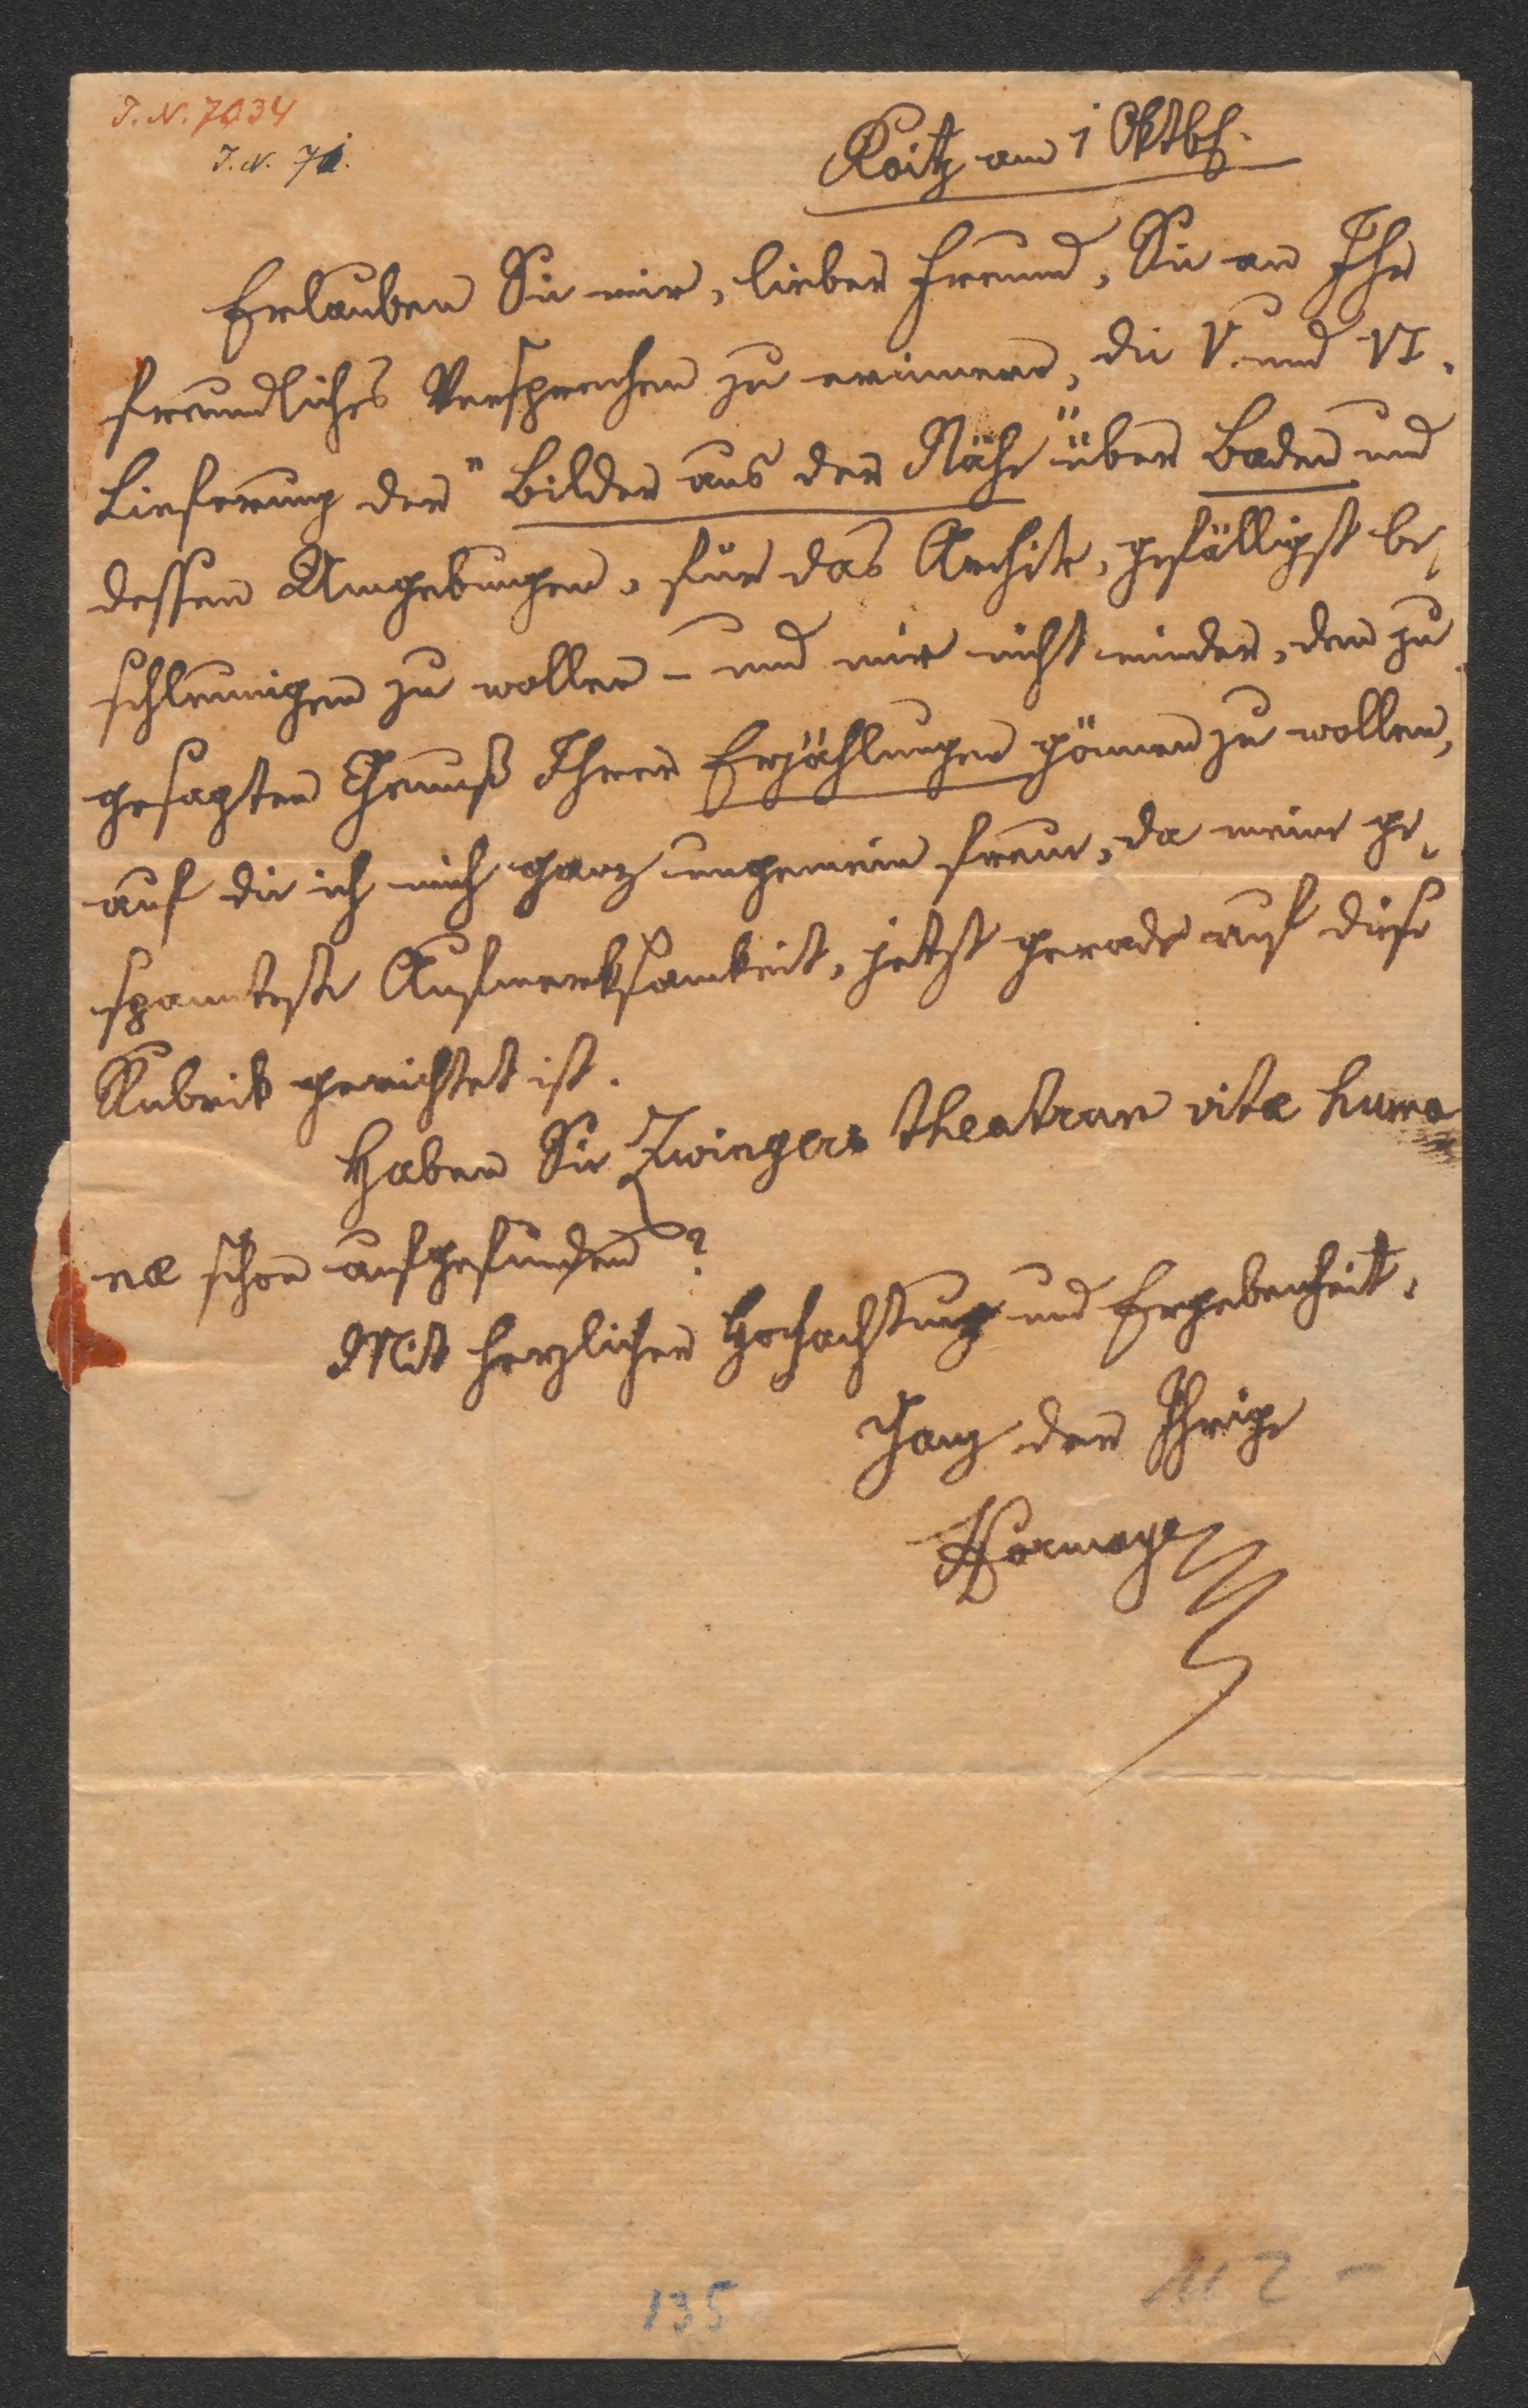 J. N. 7034
J. N. 71.
Raitz am 1 Oktbr.
Erlauben Sie mir, lieber Freund, Sie an Ihr
freundliches Versprechen zu erinnern, die V. und VI.
Lieferung der "Bilder aus der Nähe" über Baden und
dessen Umgebungen, für das Archiv, gefälligst be-
schleunigen zu wollen – und mir nicht minder, den zu
gesagten Genuß Ihrer Erzählungen gönnen zu wollen,
auf die ich mich ganz ungemein freue, da meine ge-
spannteste Aufmerksamkeit, jetzt gerade auf diese
Rubrik gerichtet ist.
Haben Sie Zwingers theatrum vitæ huma
næ schon aufgefunden?
Mit herzlicher Hochachtung und Ergebenheit,
Ganz der Ihrige
Hormayr
135
112 –